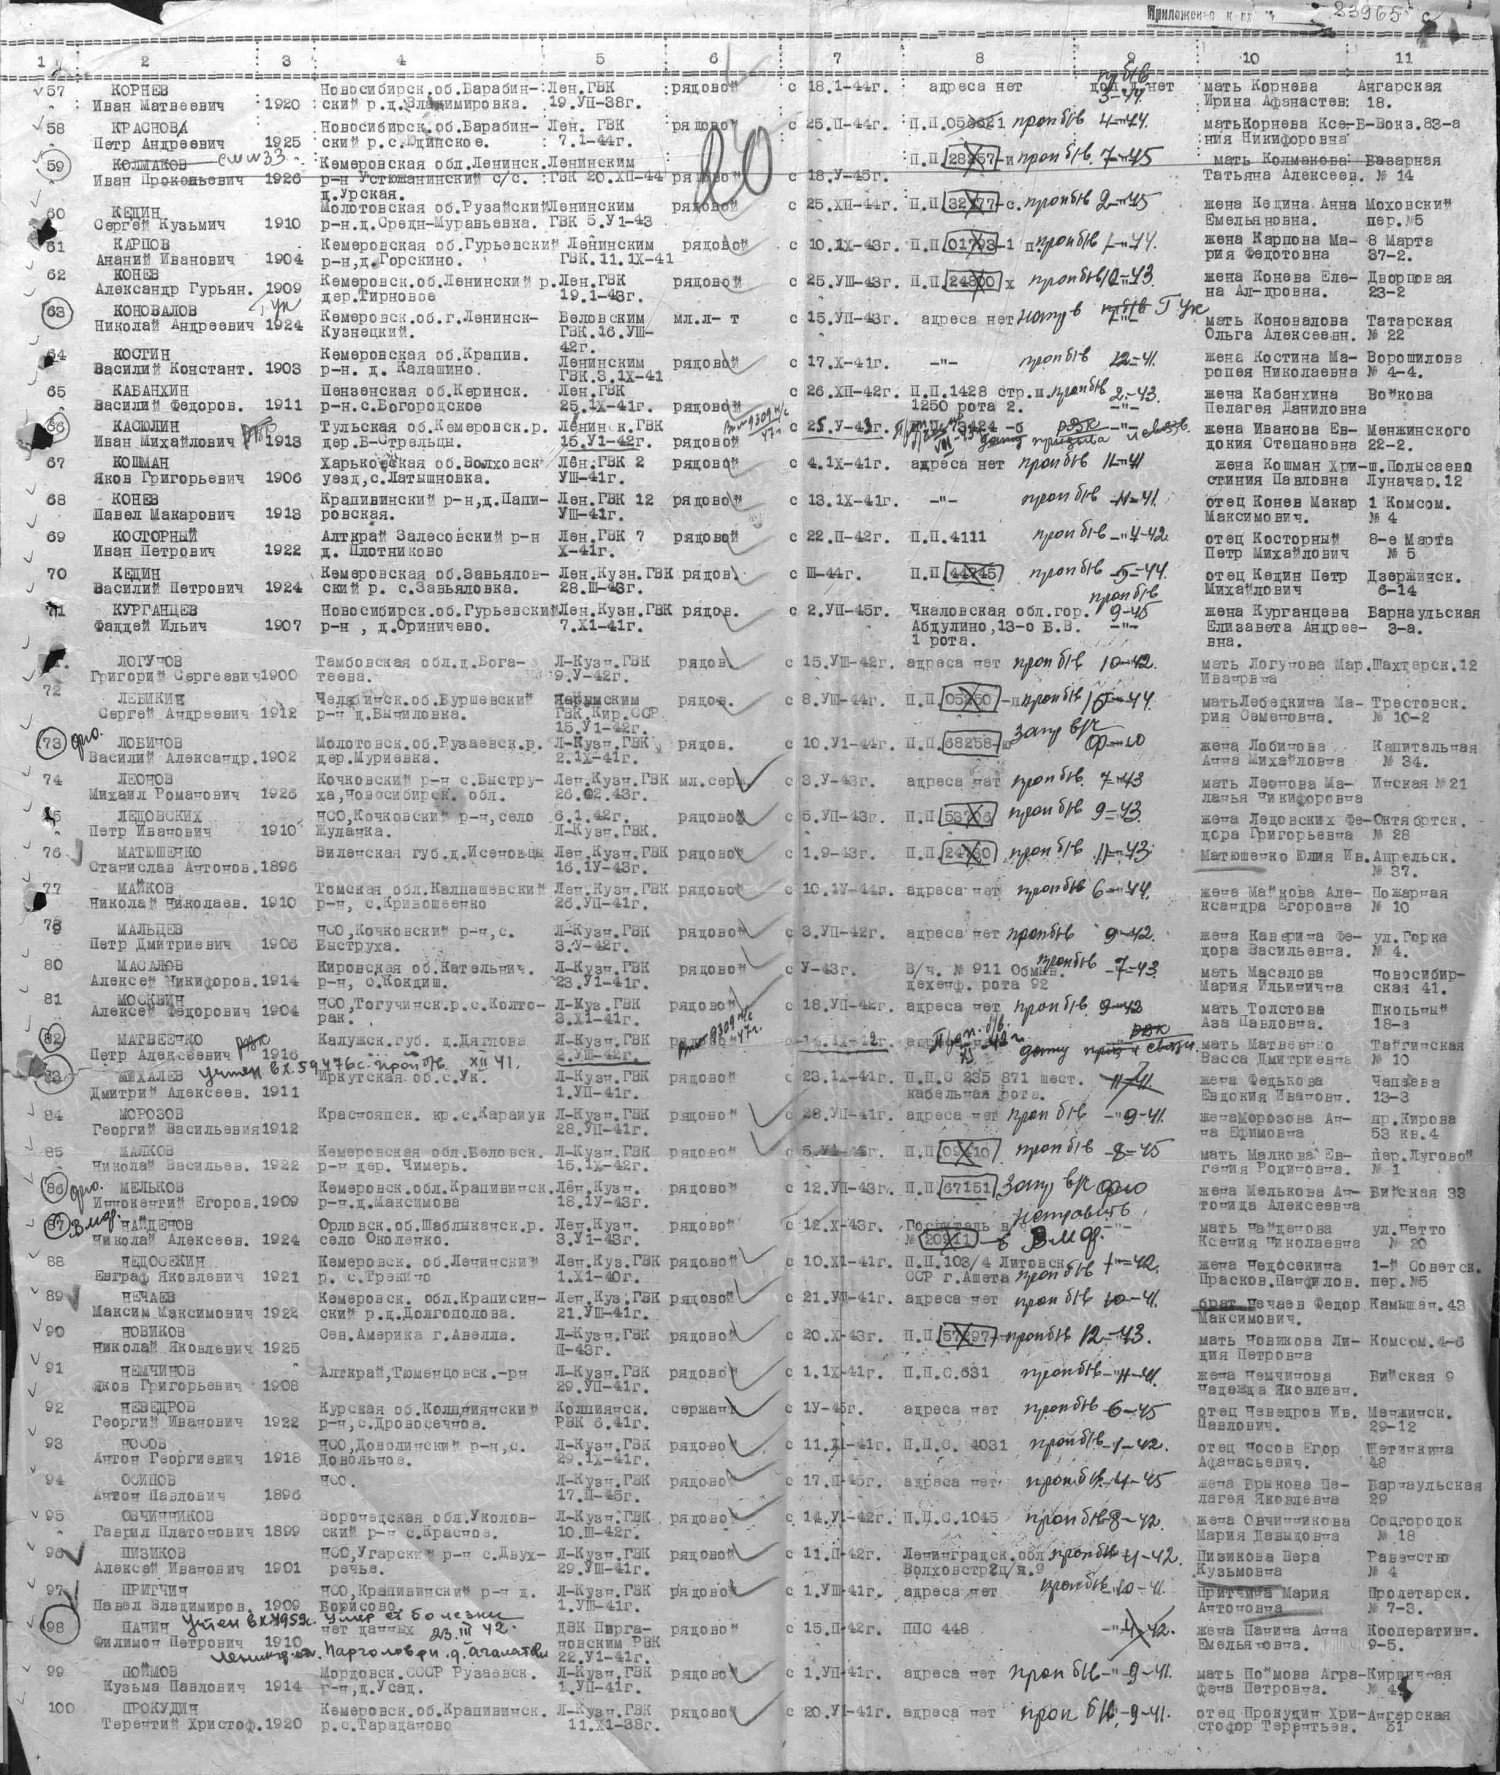 Приложение к вх 23965 с
1 2 3 4 5 6 7 8 9 10 11
57 КОРНЕВ Новосибирск.об.Барабин- Лен.ГВК рядовой с 18.1-44г. адреса нет проп б/в мать Корнева Ангарская
Иван Матвеевич 1920 ский р.д.Владимировка. 19.УП-38г. 3-44. Ирина Афанастев: 18.
58 КРАСНОВА Новосибирск.об.Барабин- Лен. ГВК рядовой с 25.П-44г. П.П. проп б/в 4-44. матьКорнева Ксе-Б-Вокз.83-а
Петр Андреевич 1925 ский р.с.Юдинское. 7.1-44г. ния Никифоровна
59 КОЛМАКОВ Кемеровская обл.Ленинск.Ленинским П.П 28257-и проп б/в 7-45 мать Колмакова Базарная
Иван Прокопьевич 1926 р-н Устюжанинский с/с. ГВК 20.ХП-44 рядовой с 18.У-45г. Татьяна Алексеев. № 14
д.Урская.
60 КЕДИН Молотовская об.Рузайский Ленинским рядовой с 25.ХП-44г. П.П 32777-с. проп б/в 2-45 жена Кедина Анна Моховский
Сергей Кузьмич 1910 р-н.д.Средн-Муравьевка. ГВК 5.У1-43 Емельяновна. пер.№5
61 КАРПОВ Кемеровская об.Гурьевский Ленинским рядовой с 10.1Х-43г. П.П 01793-1 проп б/в 1-44. жена Карпова Ма- 8 Марта
Ананий Иванович 1904 р-н,д.Горскино. ГВК.11.1Х-41 рия Федотовна 37-2.
62 КОНЕВ Кемеровск.об.Ленинский р.Лен.ГВК рядовой с 25.УШ-43г. П.П 24800 х проп б/в 10-43 жена Конева Еле- Дворцовая
Александр Гурьян. 1909 дер.Тирновое 19.1-43г. на Ал-дровна. 23-2
63 КОНОВАЛОВ Кемеровск.об.г.Ленинск- Беловским мл.л-т с 15.УП-43г. адреса нет мать Коновалова Татарская
Николай Андреевич 1924 Кузнецкий. ГВК.16.УШ- Ольга Алексеевн. № 22
42г.
64 КОСТИН Кемеровская об.Крапив. Ленинским рядовой с 17.Х-41г. -"- проп б/в 12-41. жена Костина Ма- Ворошилова
Василий Констант. 1903 р-н. д. Калашино. ГВК.3.1Х-41 ропея Николаевна № 4-4.
65 КАБАНХИН Пензенская об.Керинск. Лен.ГВК с 26.ХП-42г. П.П.1428 стр.п. проп б/в 2-43. жена Кабанхина Войкова
Василий Федоров. 1911 р-н.с.Богородское 25.1Х-41г. рядовой 1250 рота 2. -"- Пелагея Даниловна
66 КАСЮЛИН Тульская об.Кемеровск.р. Ленинск.ГВК с 25.У-43г. жена Иванова Ев- Менжинского
Иван Михайлович 1913 дер.Б-Стрельцы. 16.У1-42г. рядовой докия Степановна 22-2.
67 КОШМАН Харьковская об.Волховск Лен.ГВК 2 рядовой с 4.1Х-41г. адреса нет проп б/в 11-41 жена Кошман Хри-ш.Полысаево
Яков Григорьевич 1906 уезд,с.Латышновка. УШ-41г. стиния Павловна Луначар.12
68 КОНЕВ Крапивинский р-н,д.Папи- Лен.ГВК 12 рядовой с 13.1Х-41г. -"- проп б/в -11-41. отец Конев Макар 1 Комсом.
Павел Макарович 1913 ровская. УШ-41г. Максимович. № 4
69 КОСТОРНЫЙ Алткрай Залесовский р-н Лен.ГВК 7 рядовой с 22.П-42г. П.П.4111 проп б/в -"-4-42. отец Косторный 8-е Марта
Иван Петрович 1922 д. Плотниково Х-41г. Петр Михайлович № 5
70 КЕДИН Кемеровская об.Завьялов- Лен.Кузн.ГВК рядов. с Ш-44г. П.П 44745 проп б/в -5-44. отец Кедин Петр Дзержинск.
Василий Петрович 1924 ский р. с.Завьяловка. 28.Ш-43г. Михайлович 6-14
71 КУРГАНЦЕВ Новосибирск.об.Гурьевский Лен.Кузн.ГВК рядов. с 2.УП-45г. Чкаловская обл.гор. проп б/в 9-45 жена Курганцева Барнаульская
Фаддей Ильич 1907 р-н , д.Ориничево. 7.Х1-41г. Абдулино,13-о Б.В. -"- Елизавета Андрее- 3-а.
1 рота. вна.
ЛОГУНОВ Тамбовская обл.д.Бога- Л-Кузн.ГВК рядов. с 15.УШ-42г. адреса нет проп б/в 10-42. мать Логунова Мар.Шахтерск.12
Григорий Сергеевич 1900 теева. 9.У-42г. Ивановна
72 ЛЕБИКИН Челябинск.об.Буршевский Нарымским рядов. с 8.УШ-44г. П.П 05250 проп б/в матьЛебедкина Ма- Трестовск.
Сергей Андреевич 1912 р-н д.Выниловка. ГВК,Кир.ССР рия Семеновна. № 10-2
15.У1-42г.
73 ЛОБИНОВ Молотовск.об.Рузаевск.р. Л-Кузн.ГВК рядов. с 10.У1-44г. П.П.68258 запр в/ч жена Лобинова Капитальная
Василий Александр.1902 дер.Муриевка. 2.1Х-41г. Анна Михайловна № 34.
74 ЛЕОНОВ Кочковский р-н с.Быстру- Лен.Кузн.ГВК мл.серж с 3.У-43г. адреса нет проп б/в. 7-43 мать Леонова Ма- Инская №21
Михаил Романович 1926 ха,Новосибирск. обл. 26.02.43г. ланья Никифоровна
75 ЛЕДОВСКИХ НСО,Кочковский р-н,село 6.1.42г. рядовой с 5.УП-43г. П.П 53706 проп б/в 9-43. жена Ледовских Фе-Октябртск.
Петр Иванович 1910 Жуланка. Л-Кузн.ГВК. дора Григорьевна № 28
76 МАТЮШЕНКО Виленская губ.д.Исеновцы Лен.Кузн.ГВК рядовой с 1.9-43г. П.П проп б/в 11-43 Матюшенко Юлия Ив.Апрельск.
Станислав Антонов.1896 16.1У-43г. № 37.
77 МАЙКОВ Томская обл.Калпашевский Лен.Кузн.ГВК рядовой с 10.1У-44г. адреса нет проп б/в 6-44. жена Майкова Але- Пожарная
Николай Николаев. 1910 р-н, с.Кривошеенко 26.УП-41г. ксандра Егоровна № 10
78 МАЛЬЦЕВ НСО,Кочковский р-н,с. Л-Кузн.ГВК рядовой с 3.УП-42г. адреса нет проп б/в 9-42. жена Каверина Фе- ул.Горка
Петр Дмитриевич 1906 Быструха. 3.У-42г. дора Васильевна. № 4.
80 МАСАЛОВ Кировская об.Кательнич. Л-Кузн.ГВК рядовой с У-43г. В/ч. № 911 Обмыв. проп б/в -7-43. мать Масалова новосибир-
Алексей Никифоров.1914 р-н, с.Кокдиш. 23.У1-41г. дехенф. рота 92 Мария Ильинична ская 41.
81 МОСКВИН НСО,Тогучинск.р.с.Колто- Л-Куз.ГВК рядовой с 18.УП-42г. адреса нет проп б/в 9-42 мать Толстова Школьный
Алексей Федорович 1904 рак. 3.Х1-41г. Аза Павловна. 18-а
82 МАТВЕЕНКО Калужск.губ. д.Дяглова Л-Кузн.ГВК мать Матвеенко Тайгинская
Петр Алексеевич 1916 2.УШ-42г. Васса Дмитриевна № 10
учтен вх 59476с. проп б/в. XII 41.
83 МИХАЛЕВ Иркутская об.с.Ук. Л-Кузн.ГВК рядовой с 23.1Х-41г. П.П.С 235 871 шест. 11-41. жена Федькова Чапаева
Дмитрий Алексеев. 1911 1.УП-41г. кабельная рота. Евдокия Ивановн. 13-3
84 МОРОЗОВ Красноярск. кр.с.Карайук Л-Кузн.ГВК рядовой с 28.УП-41г. адреса нет проп б/в -"9-41. женаМорозова Ан- пр.Кирова
Георгий Васильевич 1912 28.УП-41г. на Ефимовна 53 кв.4
85 МАЛКОВ Кемеровская обл.Беловск. Л-Кузн.ГВК рядовой с 5.У1-45г. П.П 09410 проп б/в -8-45 мать Малкова Ев- пер.Луговой
Николай Васильев. 1922 р-н дер. Чимерь. 15.1Х-42г. гения Родионовна. № 1
86 МЕЛЬКОВ Кемеровск.обл.Крапивинск.Лен.Кузн. рядовой с 12.УП-43г. П.П 67151 запр в/ч жена Мелькова Ан- Бийская 33
Иннокентий Егоров.1909 р-н.д.Максимова 18.1У-43г. тонида Алексеевна
87 НАЙДЕНОВ Орловск.об.Шаблыканск.р. Лен.Кузн. рядовой с 12.Х-43г. Госпиталь в исправить -"- мать Найденова ул.Нетто
Николай Алексеев. 1924 село Околенко. 3.У1-43г. № 20911 Ксения Николаевна № 20
88 НЕДОСЕКИН Кемеровск. об.Ленинский Лен.Кузн.ГВК рядовой с 10.Х1-41г. П.П.103/4 Литовск. жена Недосекина 1-й Советск.
Евграф Яковлевич 1921 р. с.Трекино 1.Х1-40г. ССР г.Ашета проп б/в 1-42. Прасков.Панфилов. пер.№5
89 НЕЧАЕВ Кемеровск. обл.Краписин- Лен.Куз.ГВК рядовой с 21.УШ-41г. адреса нет проп б/в 10-41. брат Нечаев Федор Камышан.43
Максим Максимович 1922 ский р.д.Долгополова. 21.УШ-41г. Максимович.
90 НОВИКОВ Сев.Америка г.Авелла. Л-Кузн.ГВК рядовой с 20.Х-43г. П.П 57297 проп б/в 12-43. мать Новикова Ли- Комсом.4-6
Николай Яковлевич 1925 П-43г. дия Петровна
91 НЕМЧИНОВ Алткрай,Тюменцовск.-рн Л-Кузн.ГВК рядовой с 1.1Х-41г. П.П.С.631 проп б/в -"-11-41. жена Немчинова Бийская 9
Яков Григорьевич 1908 29.УП-41г. Надежда Яковлевн.
92 НЕВЕДРОВ Курская об.Колпнинский Колпнянск. сержант с 1У-45г. адреса нет проп б/в 6-45 отец Неведров Ив. Менжинск.
Георгий Иванович 1922 р-н,с.Дровосечное. РВК 6.41г. Павлович. 29-12
93 НОСОВ НСО,Доволинский р-н,с. Л-Кузн.ГВК рядовой с 11.Х1-41г. П.П.С. 4031 проп б/в -1-42. отец Носов Егор Щетинкина
Антон Георгиевич 1918 Довольное. 29.1Х-41г. Афанасьевич. 48
94 ОСИПОВ НСО. Л-Кузн.ГВК рядовой с 17.П-45г. адреса нет проп.б/в. -4-45 жена Брыкова Пе- Барнаульская
Антон Павлович 1896 17.П-45г. лагея Яковлевна 29
95 ОВЧИННИКОВ Воронецская обл.Уколов- Л-Кузн.ГВК рядовой с 14.У1-42г. П.П.С.1045 проп б/в 8-42. жена Овчинникова Соцгородок
Гаврил Платонович 1899 ский р-н с.Красное. 10.Ш-42г. Мария Давыдовна № 18
96 ПИЗИКОВ НСО,Угарский р-н с.Двух- Л-Кузн.ГВК рядовой с 11.П-42г. Ленинградск.обл проп б/в -4-42. Пизикова Вера Равенство
Алексей Иванович 1901 речье. 29.УШ-41г. Волховстр2ц/п.9 Кузьмовна № 4
97 ПРИТЧИН НСО,Крапивинский р-н д. Л-Кузн.ГВК рядовой с 1.УШ-41г. адреса нет проп б/в -10-41. Притчина Мария Пролетарск.
Павел Владимиров. 1909 Борисово. 1.УШ-41г. Антоновна № 7-3.
98 ПАНИН учтен вх 7959с. умер от болезни ДВК Пирга- рядовой с 15.П-42г. ППС 448 -"-4-42. жена Панина Анна Кооперативн.
Филимон Петрович 1910 нет данных 23.III 42. новским РВК Емельяновна. 9-5.
Ленингр. обл. Парголов р-н. д. Агалатово 22.У1-41г.
99 ПОЙМОВ Мордовск.СССР Рузаевск. Л-Кузн.ГВК рядовой с 1.УП-41г. адреса нет проп б/в -"-9-41. мать Поймова Агра-Кирпичная
Кузьма Павлович 1914 г-н,д.Усад. 1.УП-41г. фена Петровна. № 4
100 ПРОКУДИН Кемеровск.об.Крапивинск. Л-Кузн.ГВК рядовой с 20.У1-41г. адреса нет проп б/в. -9-41. отец Прокудин Хри-Ангарская
Терентий Христоф.1920 р.с.Тараданово 11.Х1-38г. стофор Терентьев. 51